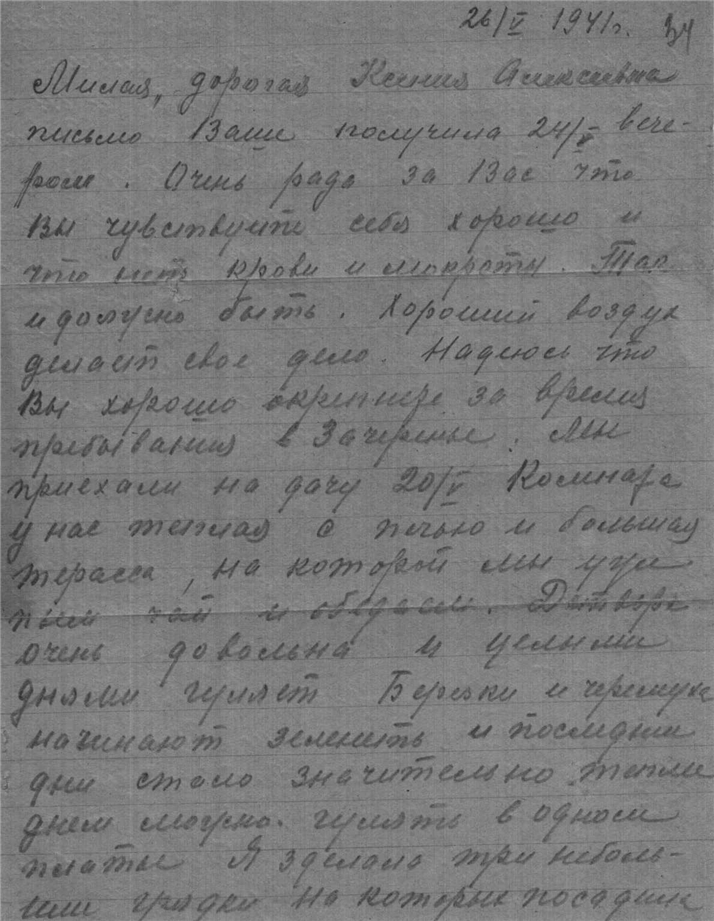 26/V 1941 г. 34
Милая, дорогая Ксения Алексеевна
письмо Ваше получила 24/V вече-
ром. Очень рада за Вас что
Вы чувствуйте себя хорошо и
что нет крови и мокроты. Так
и должно быть. Хороший воздух
делает свое дело. Надеюсь что
Вы хорошо окрепнете за время
пребывания в Зачеренье. Мы
приехали на дачу 20/V Комната
у нас теплая с печью и большая
терасса, на которой мы уже
пьем чай и обедаем. Детвора
очень довольна и целыми
днями гуляет Березки и черемуха
начинают зеленеть и последнии
дни стало значительно теплее
днем можно гулять в одном
платье Я зделала три неболь-
шие грядки на которых посадила